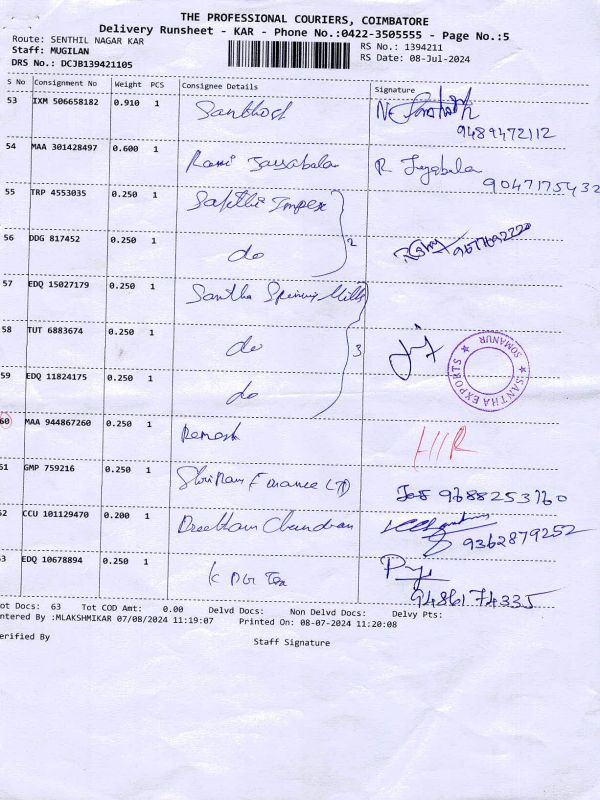 THE PROFESSIONAL COURIERS, COIMBATORE
Delivery Runsheet - KAR - Phone No.:0422-3505555 - Page No.:5
Route: SENTHIL NAGAR KAR
Staff: MUGILAN
DRS No.: DCJB139421105
RS No.: 1394211
RS Date: 08-Jul-2024
S No Consignment No Weight PCS Consignee Details Signature
53 IXM 506658182 0.910 1 Santhosh
9489472112
54 MAA 301428497 0.600 1 Rani Jayabala R Jeyabala
9047175432
55 TRP 4553035 0.250 1 Impex
56 DDG 817452 0.250 1 do 2 9677692220
57 EDQ 15027179 0.250 1 Santha Spinning Mills
58 TUT 6883674 0.250 1 do 3
SANTHA EXPORTS
SOMANUR
59 EDQ 11824175 0.250 1 do
60 MAA 944867260 0.250 1 Remesh
61 GMP 759216 0.250 1 Shriram Finance LTD 9688253760
62 CCU 101129470 0.200 1 Preetham Chandran
9362879252
63 EDQ 10678894 0.250 1
9486174335
Tot Docs: 63 Tot COD Amt: 0.00 Delvd Docs: Non Delvd Docs: Delvy Pts:
Entered By :MLAKSHMIKAR 07/08/2024 11:19:07 Printed On: 08-07-2024 11:20:08
Verified By Staff Signature